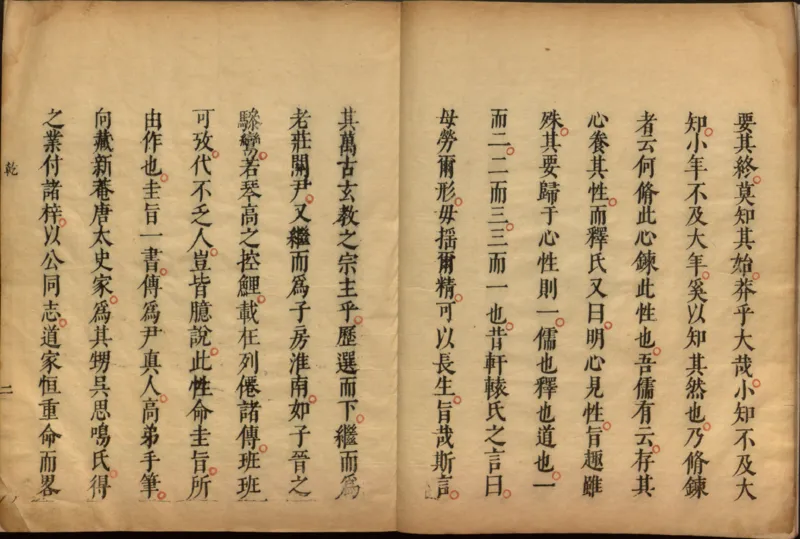 要其終莫知其始莽乎大哉小知不及大
知小年不及大年奚以知其然也乃脩鍊
者云何脩此心鍊此性也吾儒有云存其
心養其性而釋氏又曰明心見性旨趣雖
殊其要歸于心性則一儒也釋也道也一
而二二而三三而一也昔軒轅氏之言曰
毋勞爾形毋揺爾精可以長生旨哉斯言
其萬古玄教之宗主乎歷選而下繼而爲
老莊關尹又繼而爲子房淮南如子晉之
驂鸞若琴高之控鯉載在列僊諸傳班班
可攷代不乏人豈皆臆說此性命圭旨所
由作也圭旨一書傳爲尹真人高弟手筆
向藏新菴唐太史家爲其甥吳思鳴氏得
之業付諸梓以公同志道家恒重命而畧
乾
二